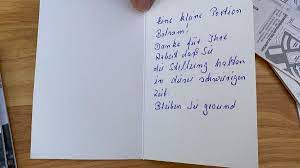 Eine kleine Portion
Balsam!
Danke für Ihre
Arbeit daß Sie
die Stellung halten
in dieser schwierigen
Zeit.
Bleiben Sie gesund